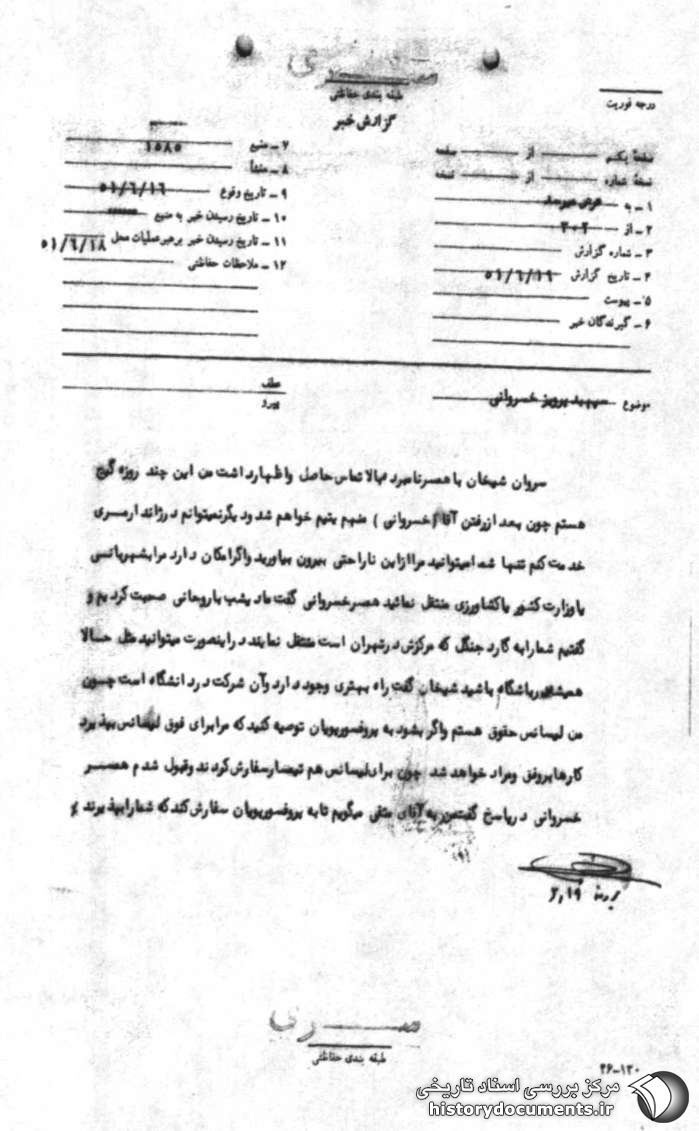 سری
طبقه بندی حفاظتی
گزارش خبر
درجه فوریت
صفحه یکم از صفحه
نسخه شماره از نسخه
۱ـ به عرض میرساند
۲ـ از ۳۰۲
۳ـ شماره گزارش
۴ـ تاریخ گزارش ۵۱/۶/۱۹
۵ـ پیوست
۶ـ گیرندگان خبر
۷ـ منبع ۱۵۸۵
۸ـ منشأ
۹ـ تاریخ وقوع ۵۱/۶/۱۶
۱۰ـ تاریخ رسیدن خبر به منبع
۱۱ـ تاریخ رسیدن خبر برهبر عملیات محل ۵۱/۶/۱۸
۱۲ـ ملاحظات حفاظتی
عطف
پیرو
موضوع سپهبد پرویز خسروانی
سروان شیخان با همسر نامبرده بالا تماس حاصل و اظهار داشت من این چند روزه گیج
هستم چون بعد از رفتن آقا (خسروانی) منهم یتیم خواهم شد و دیگر نمیتوانم در ژاندارمری
خدمت کنم تنها شما میتوانید مرا از این ناراحتی بیرون بیاورید و اگر امکان دارد مرا بشهربانی
یا وزارت کشور یا کشاورزی منتقل نمائید همسر خسروانی گفت ما دیشب با روحانی صحبت کردیم و
گفتیم شما را به گارد جنگل که مرکزش در تهران است منتقل نمایند در اینصورت میتوانید مثل حالا
همیشه در باشگاه باشید شیخان گفت راه بهتری وجود دارد و آن شرکت در دانشگاه است چون
من لیسانس حقوق هستم و اگر بشود به پروفسور پویان توصیه کنید که مرا برای فوق لیسانس بپذیرد
کارها بر وفق مراد خواهد شد چون برای لیسانس هم تیمسار سفارش کردند و قبول شدم همسر
خسروانی در پاسخ گفت من به آقای متقی میگویم تا به پروفسور پویان سفارش کند که شما را بپذیرند
۶/۱۹
سری
طبقه بندی حفاظتی
۲۶-۱۲۰
مرکز بررسی اسناد تاریخی
historydocuments.ir